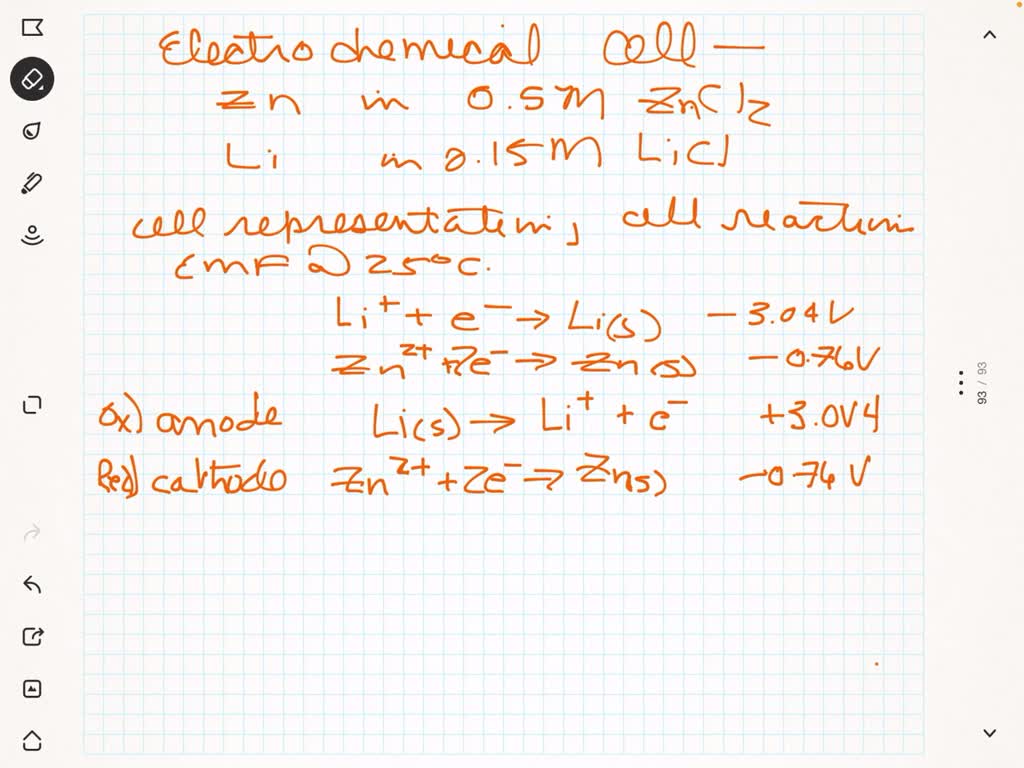 Electrochemical Cell —
Zn in 0.5M ZnCl2
Li in 0.15M LiCl
cell representation, cell reaction
EMF @ 25°C.
Li⁺ + e⁻ → Li(s) −3.04V
Zn²⁺ + 2e⁻ → Zn(s) −0.76V
Ox) anode Li(s) → Li⁺ + e⁻ +3.0V4
Red) cathode Zn²⁺ + 2e⁻ → Zn(s) −0.76 V
93 / 93